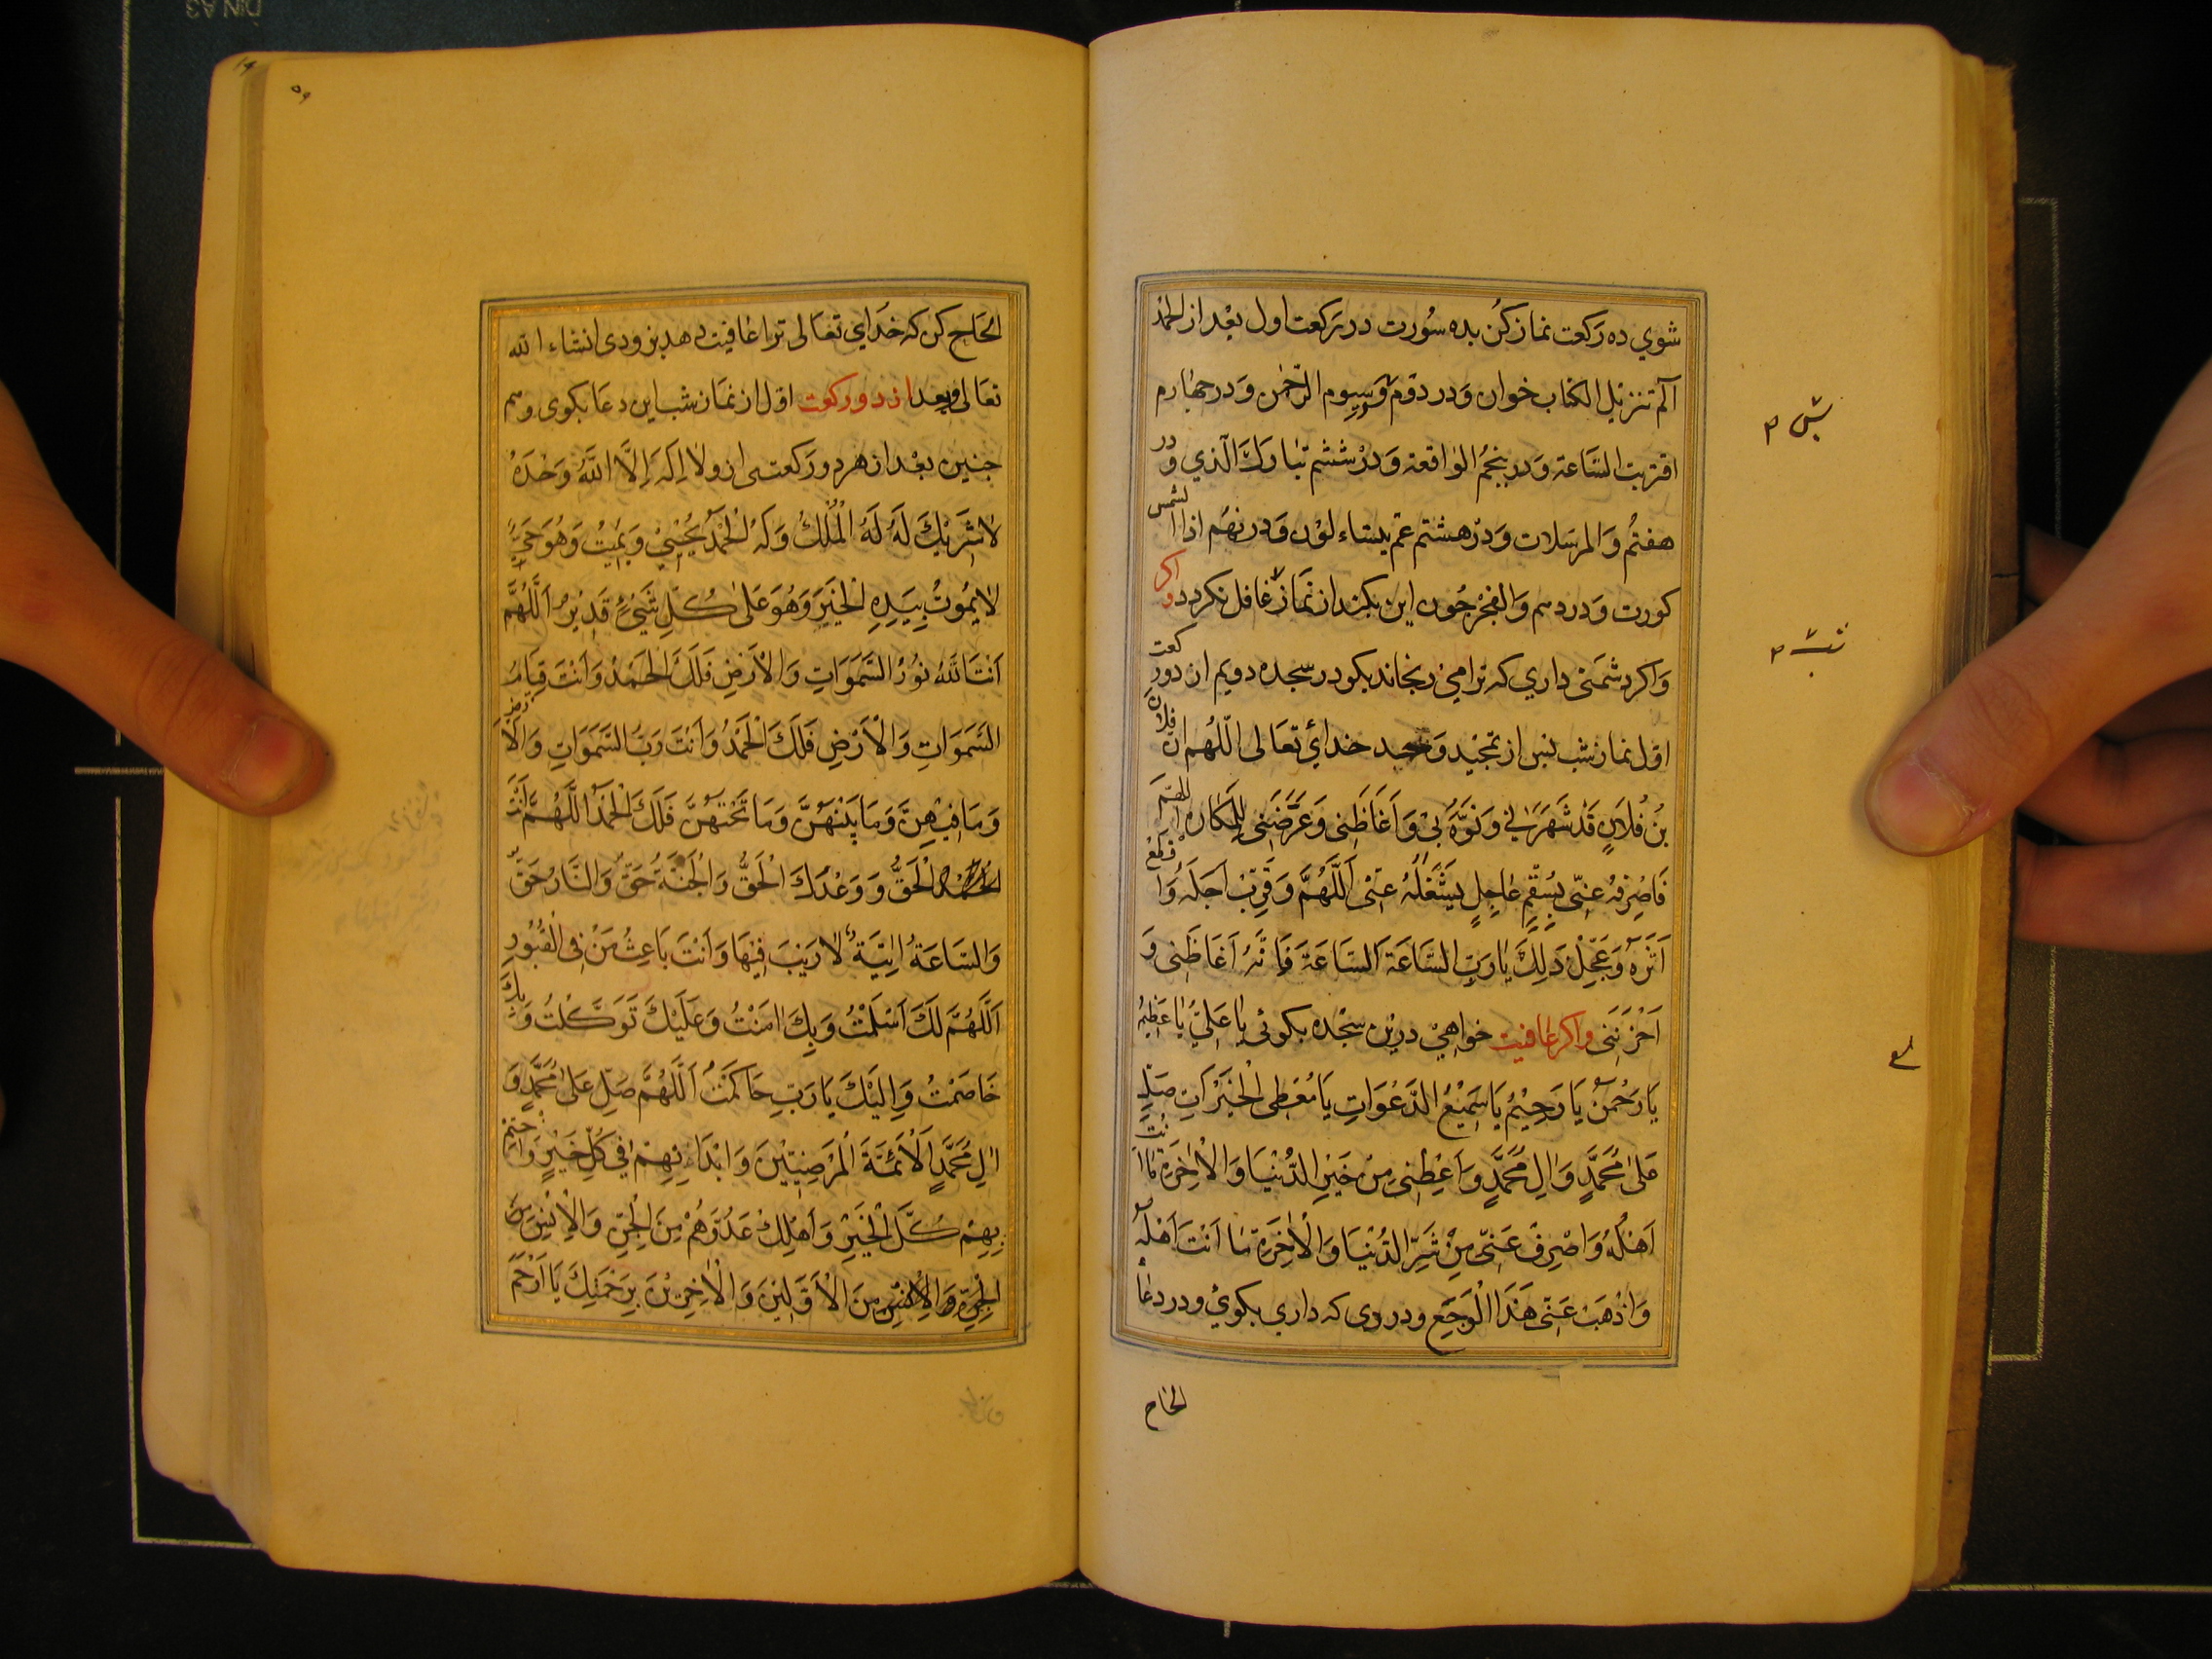 شوي ده ركعت نماز كن بده سورت در ركعت اول بعد از الحمد
آلم تنزيل الكتاب خوان و در دوم و سيوم الرحمن و در چهارم
اقتربت الساعة و در پنجم الواقعة و در ششم تبارك الذي و در
هفتم و المرسلات و در هشتم عم يتساءلون و در نهم اذا الشمس
كورت و در دهم و الفجر چون اين بكند از نماز غافل نكردد و اكر
و اكر دشمنى داري كه ترا مي رنجاند بكو در سجده دويم از دو ركعت
اول نماز شب پس از تمجيد خداي تعالى اللهم ان فلان
بن فلان قد شهرني و نوه بي و اغاظنى و عرضنى للمكاره اللهم
فاصرفه عني بسقم عاجل يشغله عنى اللهم و قرب اجله واقطع
اثره و عجل ذلك يا رب الساعة الساعة فانه اغاظنى و
احزننى و اكر عافيت خواهي درين سجده بكوئى يا علي يا عظيم
يا رحمن يا رحيم يا سميع الدعوات يا معطى الخيرات صل
على محمد و ال محمد و اعطنى من خير الدنيا و الاخرة ما انت
اهله و اصرف عنى من شر الدنيا و الاخرة ما انت اهله
و اذهب عنى هذا الوجع و دردى كه داري بكوئ و در دعا
الحاح
الحاح كن كه خداي تعالى ترا عافيت دهد بزودى انشاء الله
تعالى و بعد از دو ركعت اول از نماز شب اين دعا بكوى و هم
چنين بعد از هر دو ركعتى ازو لا اله الا الله وحده
لا شريك له له الملك و له الحمد يحيي و يميت و هو حي
لا يموت بيده الخير و هو على كل شيئ قدير اللهم
انت الله نور السموات و الارض فلك الحمد و انت قيام
السموات و الارض فلك الحمد و انت رب السموات و الارض
و ما فيهن و ما بينهن و ما تحتهن فلك الحمد اللهم انت
الحق و وعدك الحق و الجنة حق و النار حق
و الساعة اتية لا ريب فيها و انت باعث من في القبور
اللهم لك اسلمت و بك امنت و عليك توكلت و بك
خاصمت و اليك يا رب حاكمت اللهم صل على محمد و
ال محمد الائمة المرضيين و ابدأ بهم في كل خير و اختم
بهم كل الخير و اهلك عدوهم من الجن و الانس من
الجن و الانس من الاولين و الاخرين برحمتك يا ارحم